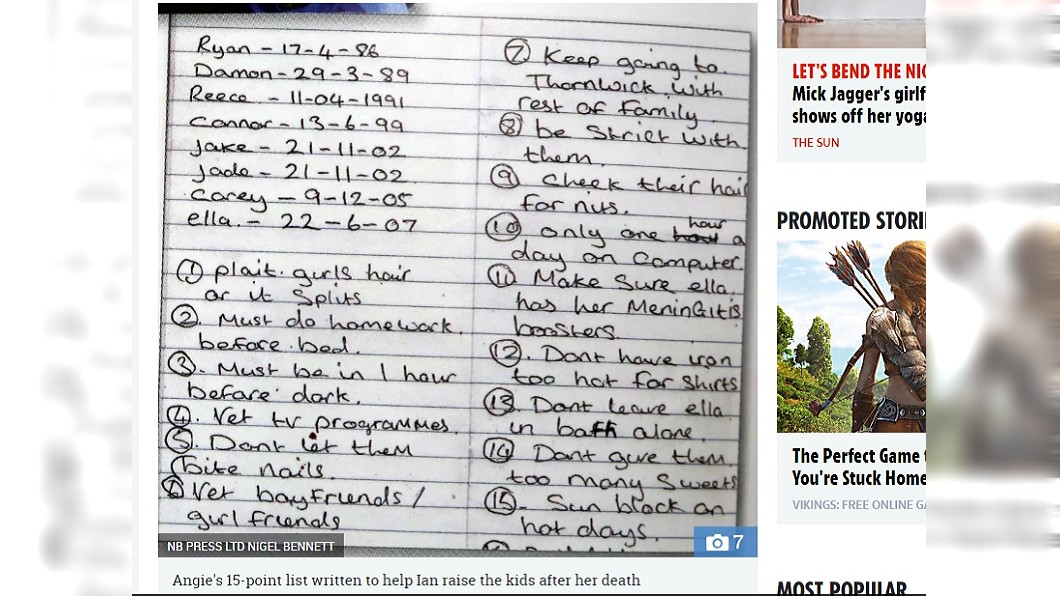 Ryan - 17-4-86
Damon - 29-3-89
Reece - 11-04-1991
Connor - 13-6-99
Jake - 21-11-02
Jade - 21-11-02
Corey - 9-12-05
ella. - 22-6-07
① plait. girls hair
or it Splits
②. Must do homework.
before bed.
③. Must be in 1 hour
before dark.
④. Vet tv programmes.
⑤. Dont let them
bite nails.
⑥ Vet boyfriends /
girlfriends
⑦ Keep going to.
Thornwick with
rest of family
⑧ be Strict with
them.
⑨ Check their hair
for nits.
hour
⑩ only one a
day on Computer.
⑪ Make Sure ella.
has her MeninGitis
boosters.
⑫. Dont have iron
too hot for Shirts
⑬. Dont leave ella
in bath alone.
⑭ Dont give them.
too many Sweets
⑮. Sun block on
hot days.
NB PRESS LTD NIGEL BENNETT
7
Angie's 15-point list written to help Ian raise the kids after her death
LET'S BEND THE NIG
Mick Jagger's girlf
shows off her yoga
THE SUN
PROMOTED STORI
The Perfect Game
You're Stuck Home
VIKINGS: FREE ONLINE GA
MOST POPULAR